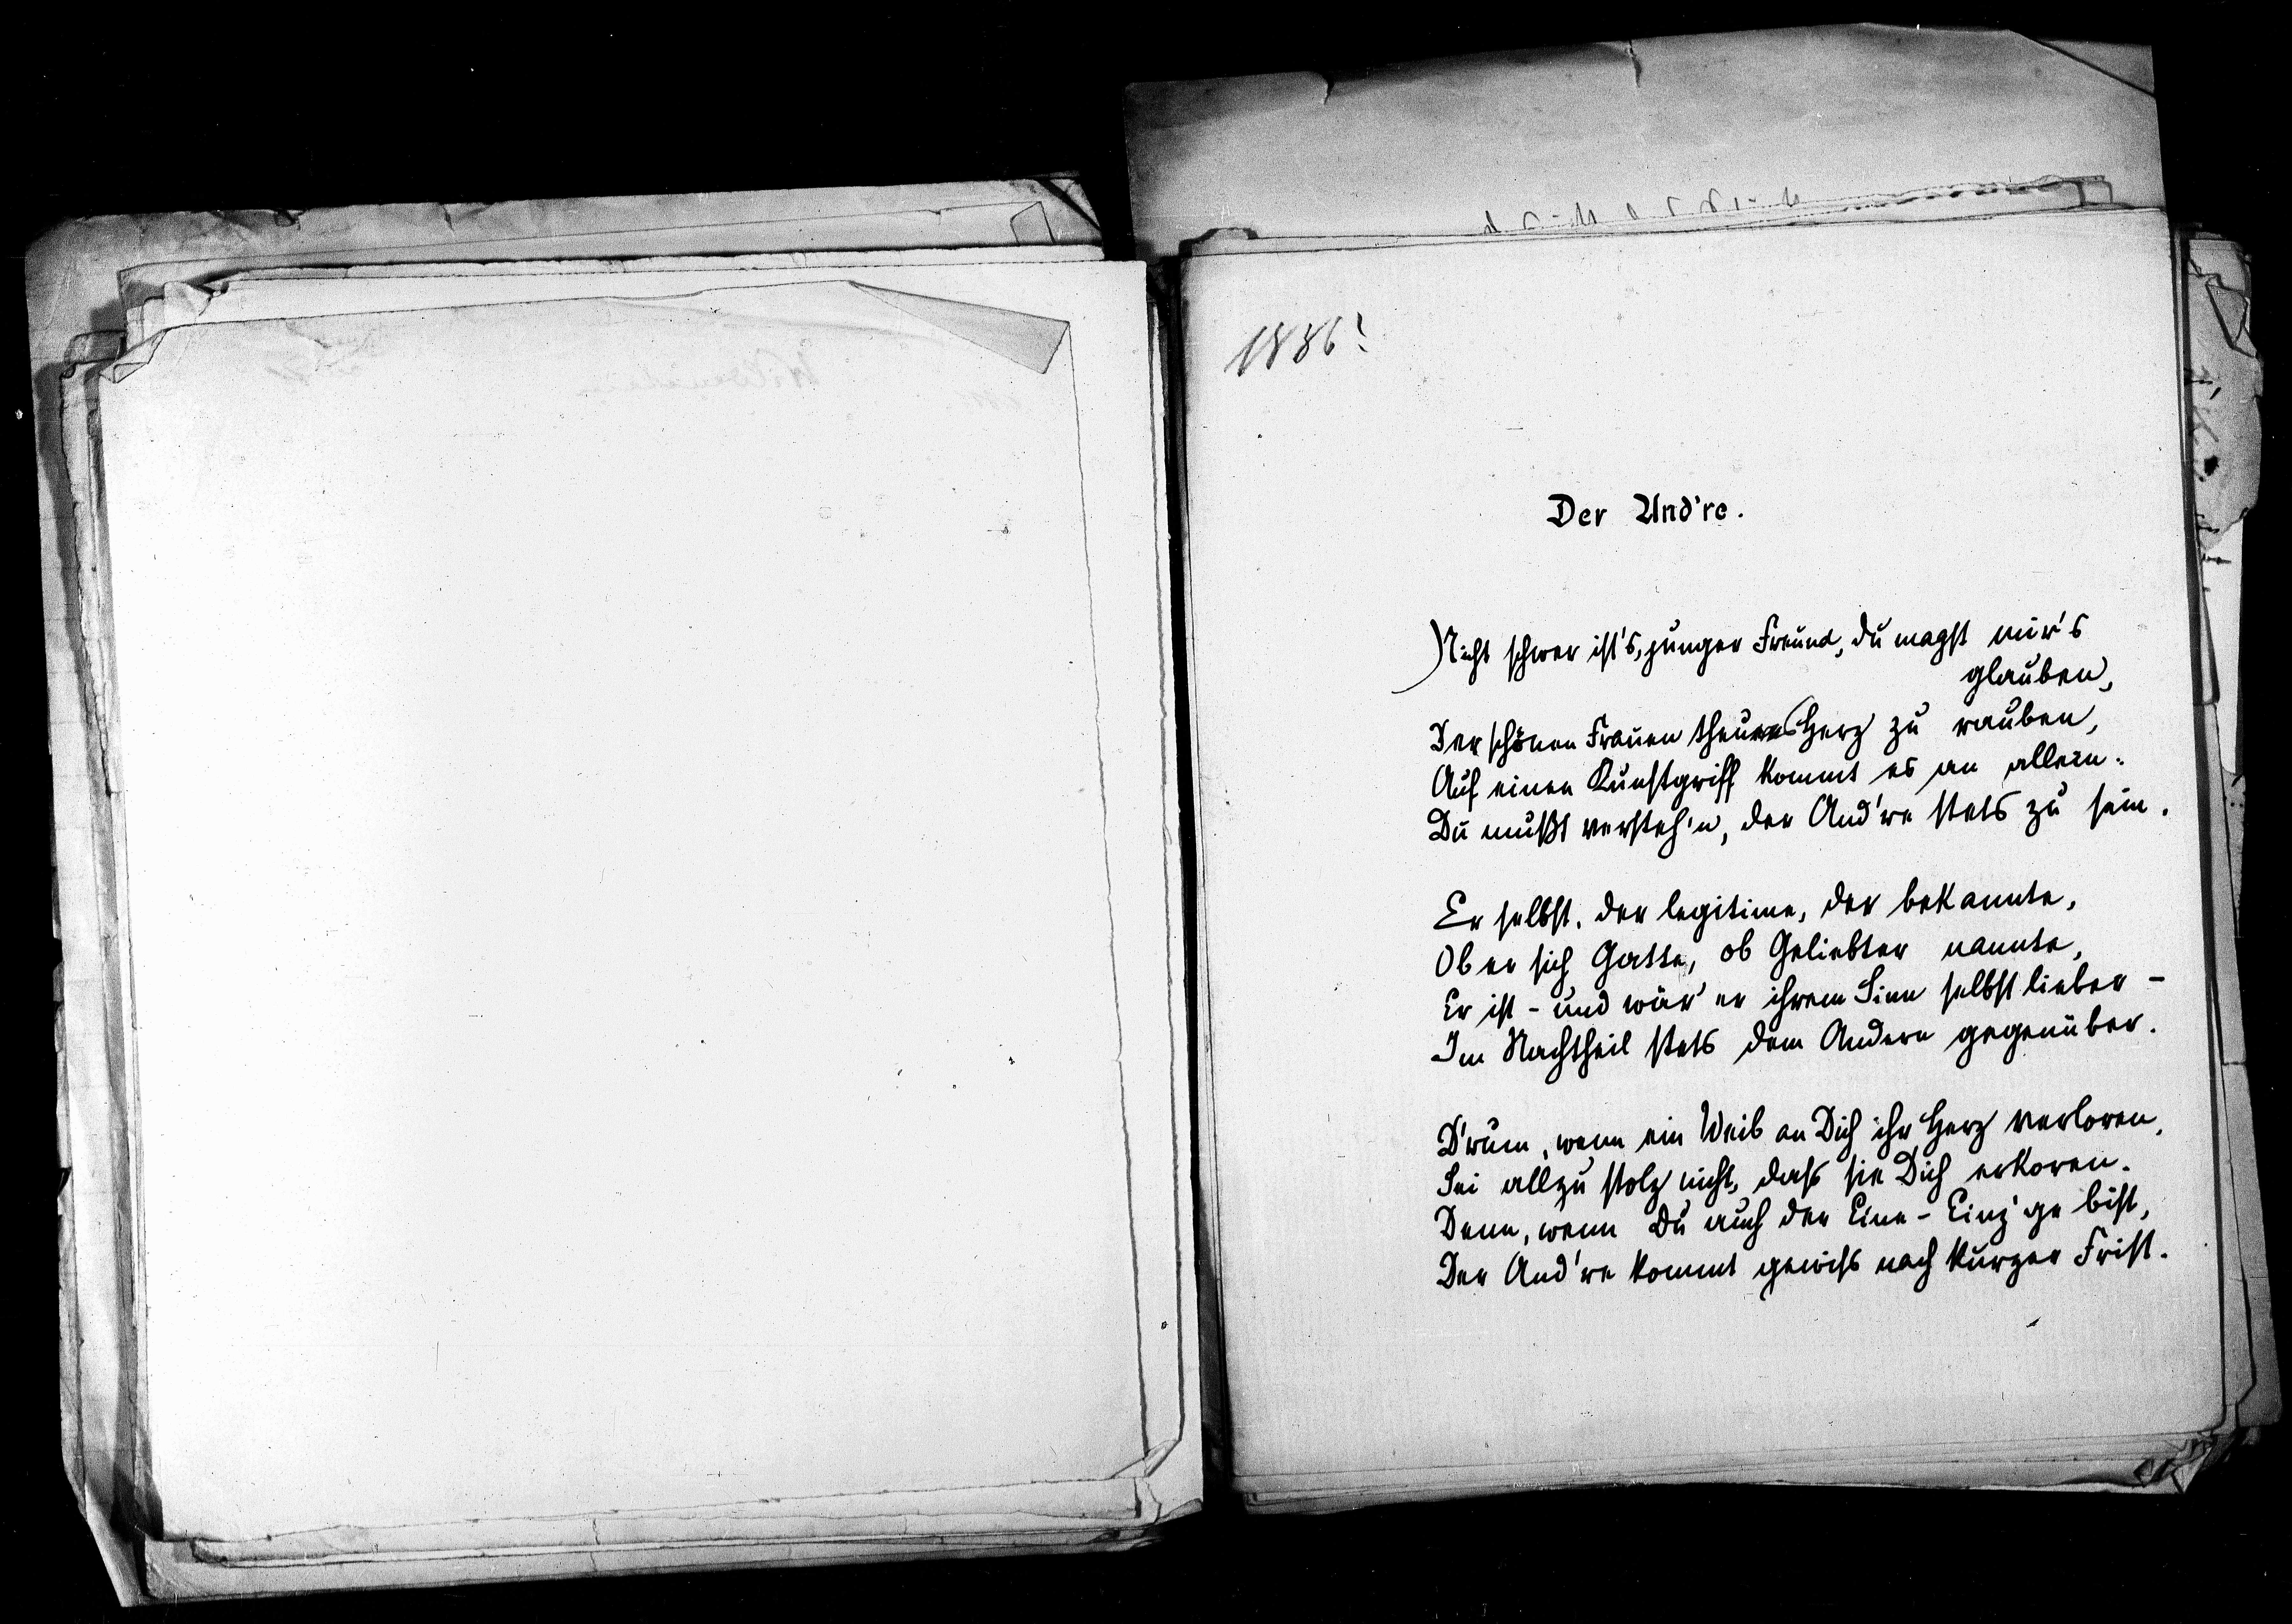 1886?
Der And're.
Nicht schwer ist's, junger Freund, du magst mir's
glauben,
Der schönen Frauen theures Herz zu rauben,
Auf einen Kunstgriff kommt es an allein:
Du mußt versteh'n, der And're stets zu sein.
Er selbst, der legitime, der bekannte,
Ob er sich Gatte, ob Geliebter nannte,
Er ist - und wär' er ihrem Sinn selbst lieber -
Im Nachtheil stets dem Andern gegenüber.
D'rum, wenn ein Weib an Dich ihr Herz verloren,
Sei allzu stolz nicht, dass sie Dich erkoren.
Denn, wenn Du auch der Eine - Einz'ge bist,
Der And're kommt gewiss nach kurzer Frist.